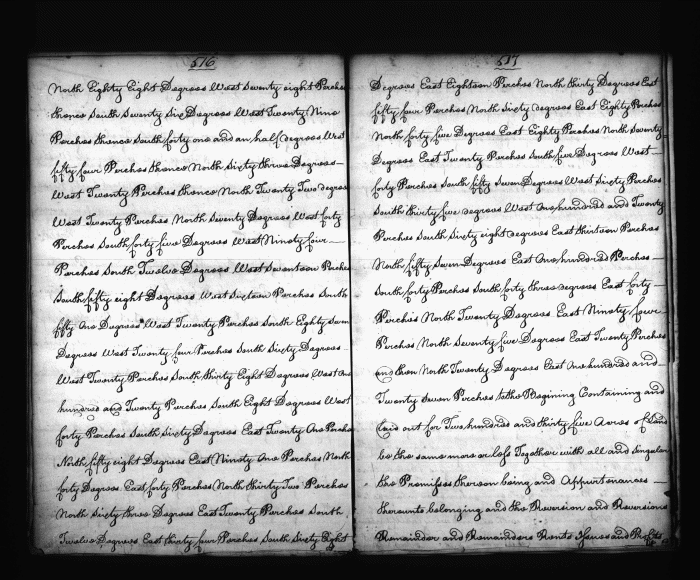 516
North Eighty Eight Degrees West Seventy eight Perches
thence South Seventy Six Degrees West Twenty Nine
Perches thence South forty one and an half degrees West
fifty four Perches thence North Sixty three Degrees
West Twenty Perches thence North Twenty Two degrees
West Twenty Perches North Seventy Degrees West forty
Perches South forty five Degrees West Ninety four
Perches South Twelve Degrees West Seventeen Perches
South fifty eight Degrees West Sixteen Perches South
fifty One Degrees West Twenty Perches South Eighty Seven
Degrees West Twenty four Perches South Sixty Degrees
West Twenty Perches South thirty Eight Degrees West One
hundred and Twenty Perches South Eight Degrees West
forty Perches South Sixty Degrees East Twenty One Perches
North fifty eight Degrees East Ninety One Perches North
forty Degrees East forty Perches North thirty Two Perches
North Sixty three Degrees East Twenty Perches South
Twelve Degrees East thirty four Perches South Sixty Eight
517
Degrees East Eighteen Perches North thirty Degrees East
fifty four Perches North Sixty degrees East Eighty Perches
North forty five Degrees East Eighty Perches North Seventy
Degrees East Twenty Perches South five Degrees West
forty Perches South fifty Seven Degrees West Sixty Perches
South thirty five degrees West One hundred and Twenty
Perches South Sixty eight degrees East thirteen Perches
North fifty Seven Degrees East One hundred Perches
South forty Perches South forty three degrees East forty
Perches North Twenty Degrees East Ninety five
Perches North Seventy five Degrees East Twenty Perches
and then North Twenty Degrees East One hundred and
Twenty Seven Perches to the Begining Containing and
Laid out for Two hundred and thirty five Acres of Land
be the same more or less Together with all and Singular
the Premisses thereon being and Appurtenances
thereunto belonging and the Reversion and Reversions
Remainder and Remainders Rents Issues and Profits